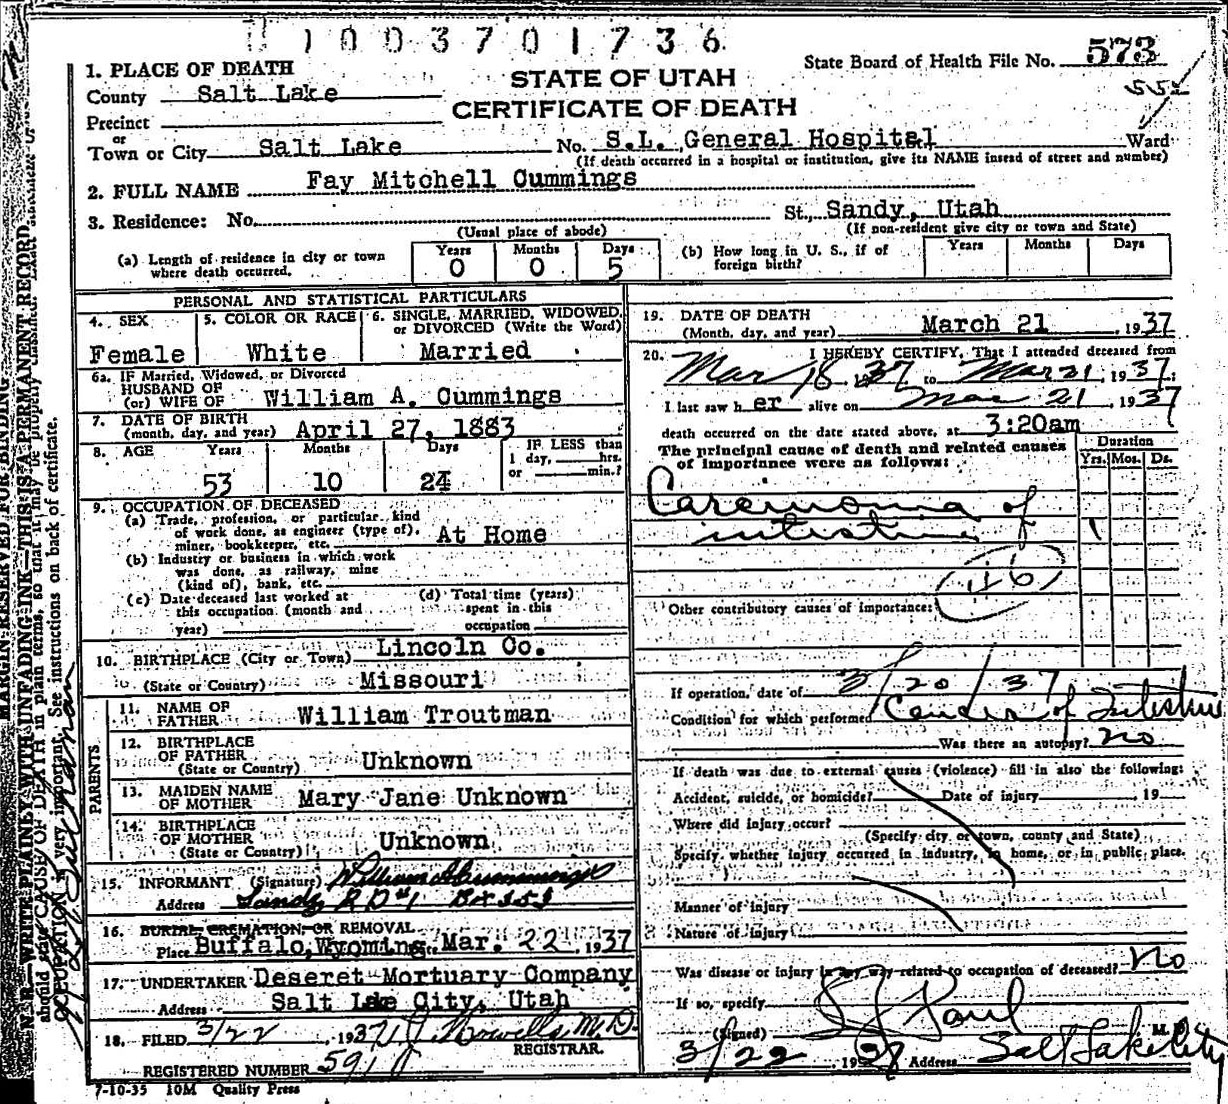 1003701736
State Board of Health File No. 573
552
STATE OF UTAH
CERTIFICATE OF DEATH
1. PLACE OF DEATH
County Salt Lake
Precinct
or
Town or City Salt Lake No. S.L. General Hospital Ward
(If death occurred in a hospital or institution, give its NAME instead of street and number)
2. FULL NAME Fay Mitchell Cummings
3. Residence: No. St., Sandy, Utah
(Usual place of abode) (If non-resident give city or town and State)
(a) Length of residence in city or town where death occurred. Years 0 Months 0 Days 5
(b) How long in U. S., if of foreign birth? Years Months Days
PERSONAL AND STATISTICAL PARTICULARS
4. SEX Female
5. COLOR OR RACE White
6. SINGLE, MARRIED, WIDOWED, or DIVORCED (Write the Word) Married
6a. IF Married, Widowed, or Divorced
HUSBAND OF
(or) WIFE OF William A. Cummings
7. DATE OF BIRTH
(month, day, and year) April 27, 1883
8. AGE Years 53 Months 10 Days 24
IF LESS than
1 day, hrs.
or min.?
9. OCCUPATION OF DECEASED
(a) Trade, profession, or particular kind
of work done, as engineer (type of),
miner, bookkeeper, etc. At Home
(b) Industry or business in which work
was done, as railway, mine
(kind of), bank, etc.
(c) Date deceased last worked at
this occupation (month and
year)
(d) Total time (years)
spent in this
occupation
10. BIRTHPLACE (City or Town) Lincoln Co.
(State or Country) Missouri
PARENTS
11. NAME OF
FATHER William Troutman
12. BIRTHPLACE
OF FATHER
(State or Country) Unknown
13. MAIDEN NAME
OF MOTHER Mary Jane Unknown
14. BIRTHPLACE
OF MOTHER
(State or Country) Unknown
15. INFORMANT (Signature) William A Cummings
Address Sandy R D #1 Box 353
16. BURIAL, CREMATION, OR REMOVAL
Place Buffalo, Wyoming Mar. 22, 1937
17. UNDERTAKER Deseret Mortuary Company
Address Salt Lake City, Utah
18. FILED 3/22, 1937 Howells M.D.
REGISTRAR.
REGISTERED NUMBER 591
7-10-35 10M Quality Press
19. DATE OF DEATH
(Month, day, and year) March 21, 1937
20. I HEREBY CERTIFY, That I attended deceased from
Mar 18 1937 to Mar 21, 1937;
I last saw her alive on Mar 21 1937
death occurred on the date stated above, at 3:20am
The principal cause of death and related causes
of importance were as follows:
Duration
Yrs. Mos. Ds.
Carcinoma of
intestine 1
46
Other contributory causes of importance:
If operation, date of 3/20/37
Condition for which performed Cancer of Intestine
Was there an autopsy? no
If death was due to external causes (violence) fill in also the following:
Accident, suicide, or homicide? Date of injury 19
Where did injury occur?
(Specify city or town, county and State)
Specify whether injury occurred in industry, in home, or in public place.
Manner of injury
Nature of injury
Was disease or injury in any way related to occupation of deceased? No
If so, specify
(Signed) Paul M. D.
3/22 1937 Address Salt Lake City
MARGIN RESERVED FOR BINDING
WRITE PLAINLY WITH UNFADING INK—THIS IS A PERMANENT RECORD.
CAUSE OF DEATH in plain terms, so that it may be properly classified.
OCCUPATION is very important. See instructions on back of certificate.